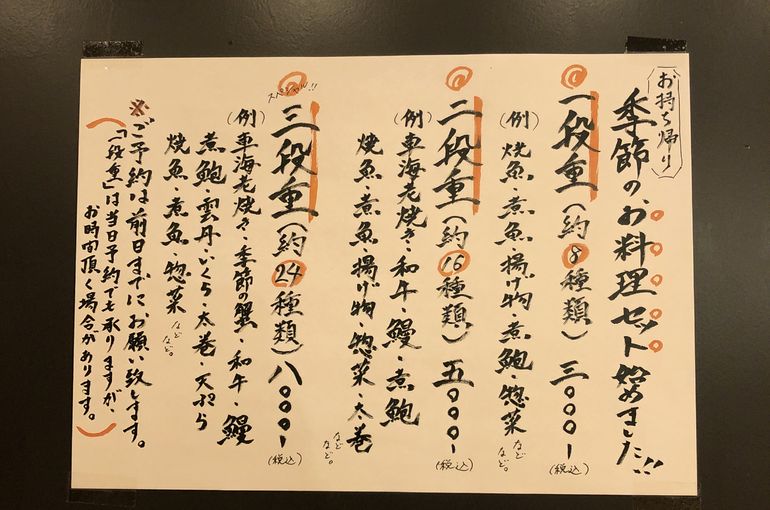 お持ち帰り
季節のお料理セット始めました!!
一段重(約8種類)三〇〇〇-
(税込)
(例)焼魚・煮魚・揚げ物・煮鮑・惣菜
などなど。
二段重(約16種類)五〇〇〇-
(税込)
(例)車海老焼き・和牛・鰻・煮鮑
焼魚・煮魚・揚げ物・惣菜・太巻
などなど。
スペシャル!!
三段重(約24種類)八〇〇〇-
(税込)
(例)車海老焼き・季節の蟹・和牛・鰻
煮鮑・雲丹・いくら・太巻・天ぷら
焼魚・煮魚・惣菜
などなど。
※ご予約は前日までにお願い致します。
(「一段重」は当日予約でも承りますが、
お時間頂く場合があります。)